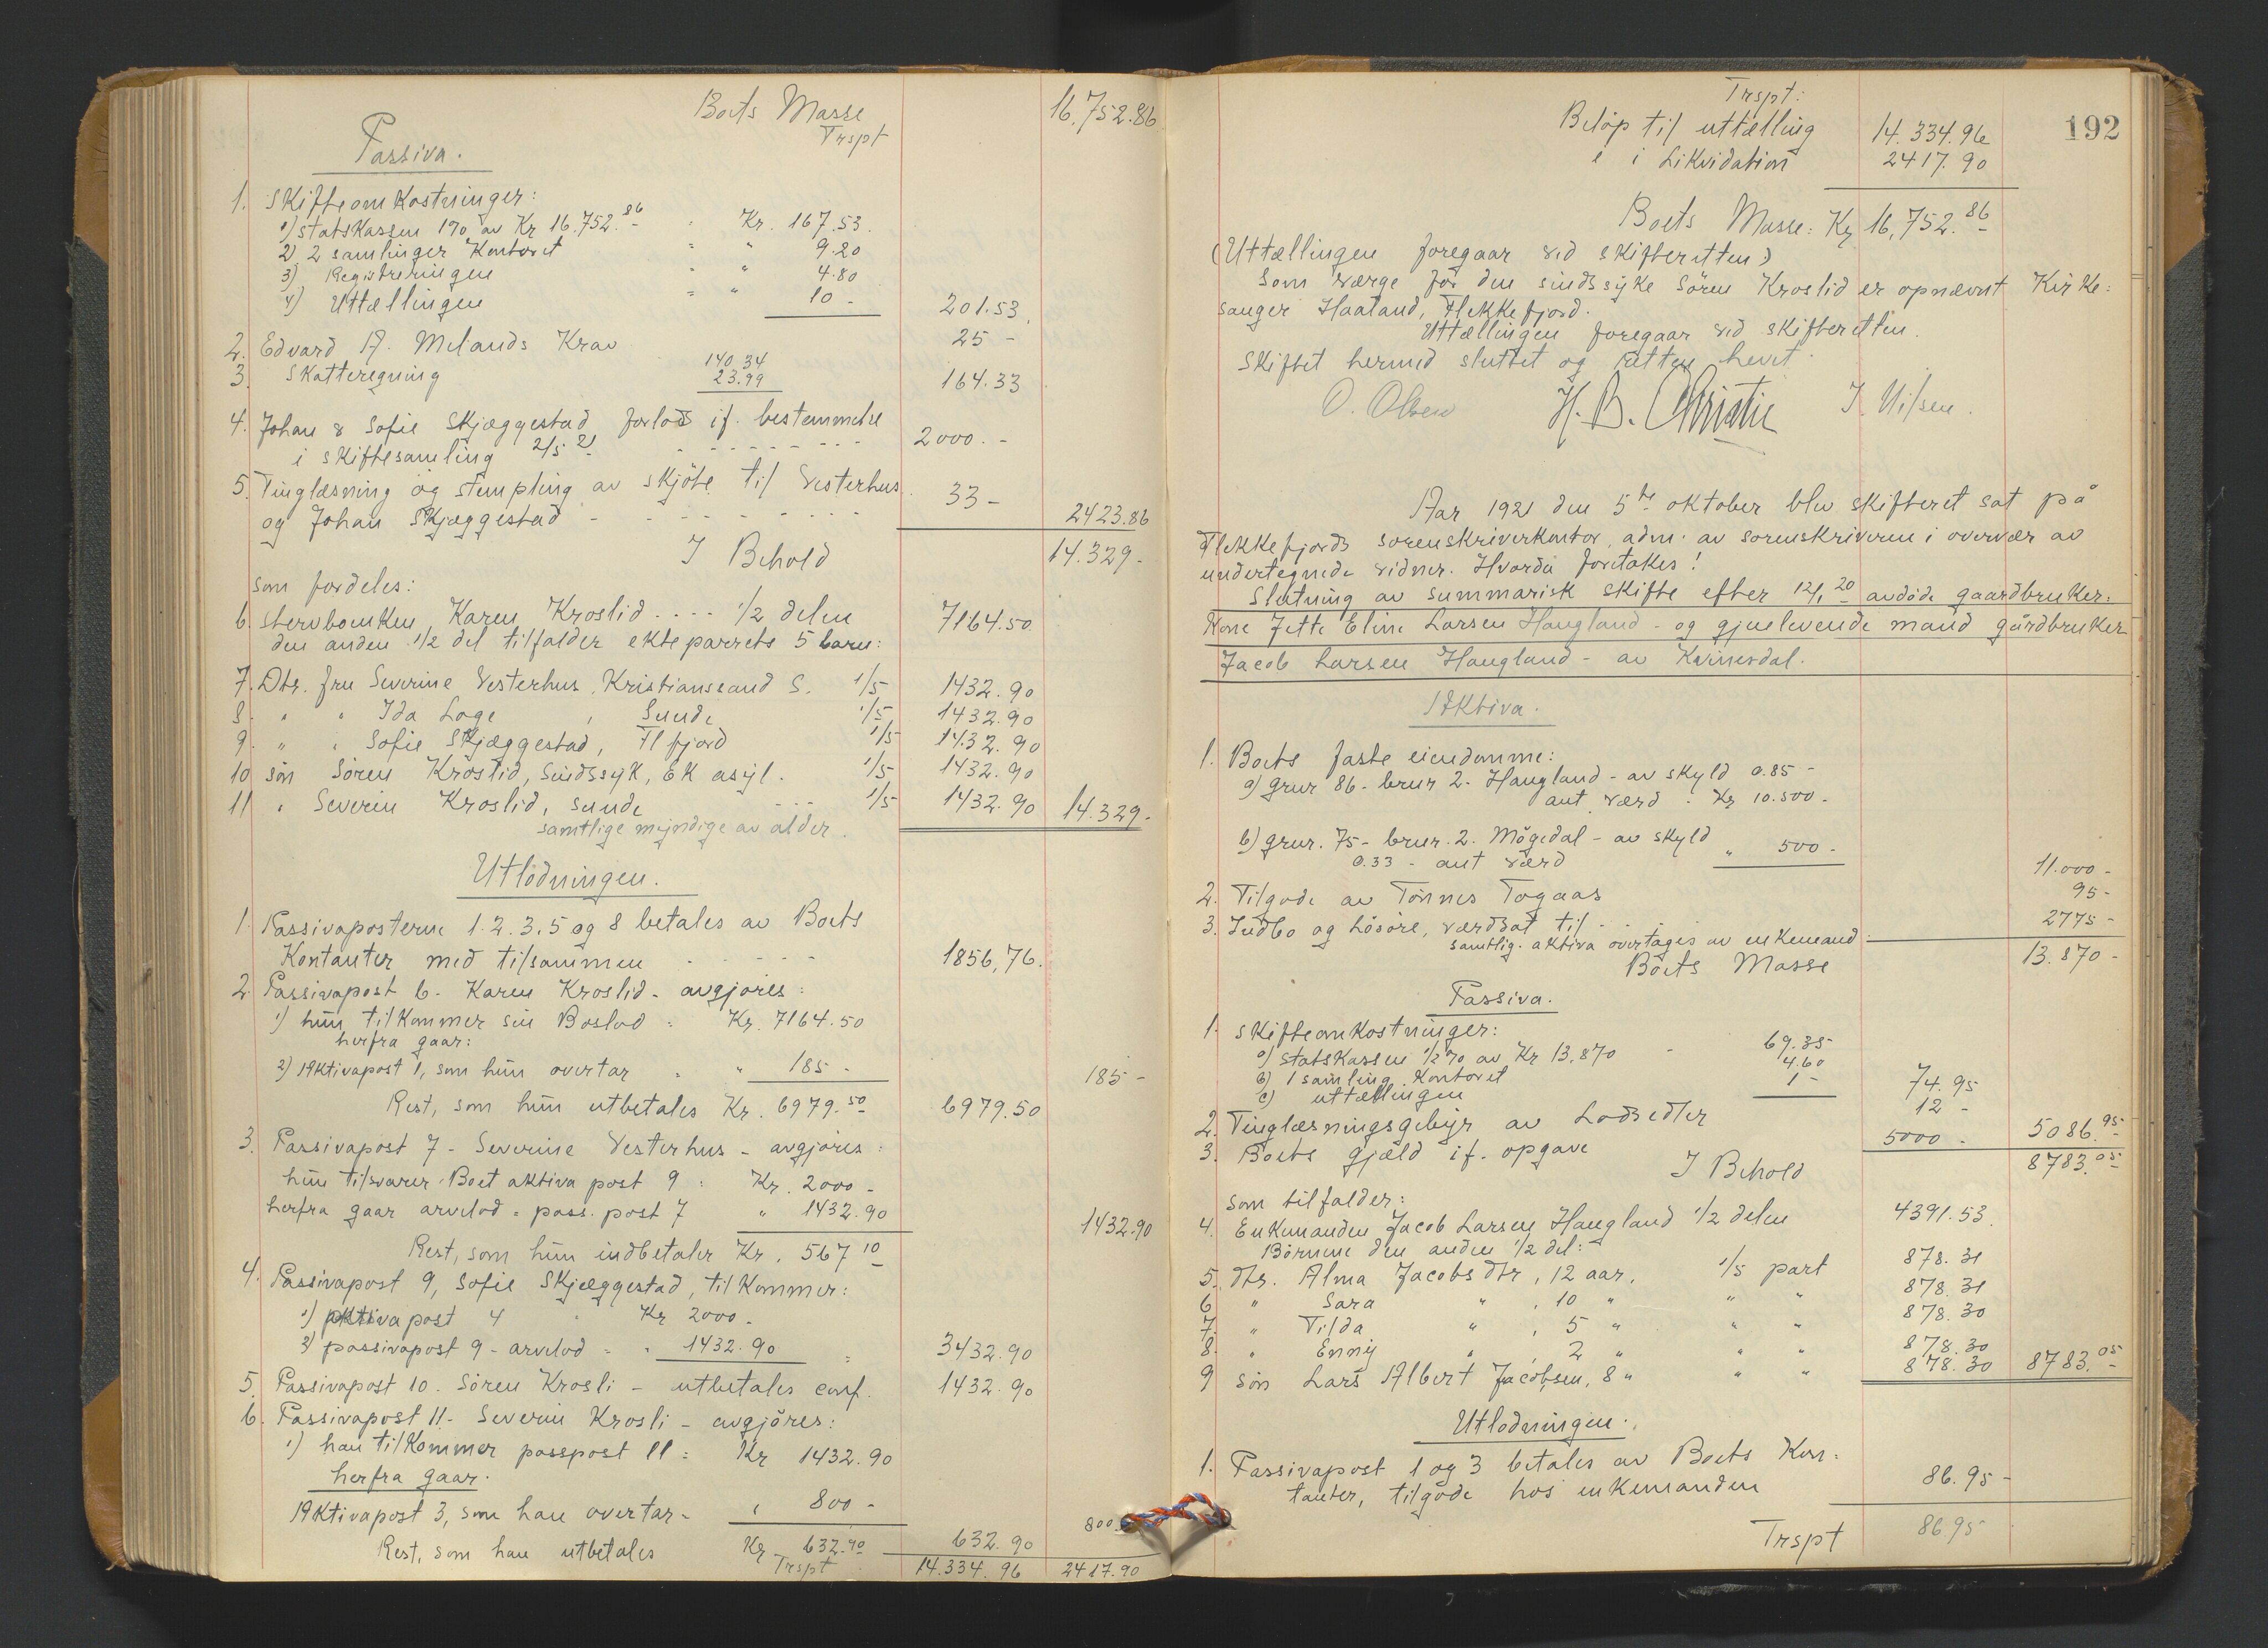 Boets Masse
Trspt 16,752.86
Passiva.
1. Skifteomkostninger:
1) Statskassen 1% av Kr 16,752.86 - : Kr. 167.53.
2) 2 samlinger Kontoret = " 9.20
3) Registreringen = " 4.80
4) Uttællingen = " 10 - 201.53.
2. Edvard A. Melands Krav 25 -
3. Skatteregning 140.34
23.99 164.33
4. Johan & Sofie Skjæggestad forlods if. bestemmelse
i skiftesamling 2/5 21 - - - - - - - 2000. -
5. Tinglæsning og stempling av skjöte til Vesterhus
og Johan Skjæggestad - - - - - - - - 33 - 2423.86
I Behold 14.329 -
som fordeles:
6. Stervboenken Karen Kroslid .... 1/2 delen 7164.50
den anden 1/2 del tilfalder ekteparrets 5 barn:
7. Dtr. fru Severine Vesterhus, Kristianssand S. 1/5 1432.90
8. " " Ida Loge , Sunde 1/5 1432.90
9. " " Sofie Skjæggestad, Fl fjord 1/5 1432.90
10 sön Sören Kroslid, Sindssyk, EK asyl. 1/5 1432.90
11 " Severin Kroslid, Sunde - - - 1/5 1432.90 14.329 -
samtlige myndige av alder.
Utlodningen.
1. Passivaposterne 1.2.3.5 og 8 betales av Boets
Kontanter med tilsammen - - - - - 1856,76.
2. Passivapost 6 - Karen Kroslid - avgjöres :
1) hun tilkommer sin Boslod : Kr. 7164.50
herfra gaar:
2) Aktivapost 1, som hun overtar = " 185 - 185 -
Rest, som hun utbetales Kr. 6979.50 6979.50
3. Passivapost 7 - Severine Vesterhus - avgjöres :
hun tilsvarer Boet aktiva post 9 : Kr. 2000 -
herfra gaar arvelod = pass. post 7 " 1432.90 1432.90
Rest, som hun indbetaler Kr. 567 10
4. Passivapost 9, Sofie Skjæggestad, tilkommer:
1) aktivapost 4 " Kr 2000 -
2) passivapost 9 - arvelod = " 1432.90 = 3432.90
5. Passivapost 10. Sören Krosli - utbetales conf. 1432.90
6. Passivapost 11 - Severin Krosli - avgjöres:
1) han tilkommer passpost 11 : Kr 1432.90
herfra gaar.
Aktivapost 3, som han overtar - " 800 - 800
Rest, som han utbetales Kr 632.90 632.90
Trspt 14.334.96 2417.90
192
Trspt:
Belöp til uttælling 14.334.96
" i Likvidation 2417.90
Boets Masse: Kr 16,752.86
(Uttællingen foregaar ved skifteretten)
Som værge for den sindssyke Sören Kroslid er opnævnt Kirke:
sanger Haaland, Flekkefjord.
Uttællingen foregaar ved skifteretten.
Skiftet hermed sluttet og retten hevet.
O. Olsen H. B. Christie J. Nilsen.
Aar 1921 den 5te oktober blev skifteret sat på
Flekkefjords sorenskriverkontor, adm. av sorenskriveren i overvær av
undertegnede vidner. Hvorda foretakes!
Slutning av summarisk skifte efter 12/1 20 avdöde gaardbruker:
kone Jette Eline Larsen Haugland - og gjenlevende mand gårdbruker
Jacob Larsen Haugland - av Kvinesdal.
Aktiva.
1. Boets faste eiendomme:
a) grnr 86 - brnr 2. Haugland - av skyld 0.85 -
ant. værd : Kr 10.500 -
b) grnr. 75 - brnr. 2. Mögedal - av skyld
0.33 - ant værd " 500 - 11.000 -
2. Tilgode av Tönnes Togaas 95 -
3. Indbo og lösöre, værdsat til - . - 2775 -
samtlig. aktiva overtages av enkemand
Boets Masse 13.870 -
Passiva.
1. Skifteomkostninger:
a) Statskassen 1/2% av Kr 13.870 - 69.35
b) 1 samling Kontoret 4.60
c) uttællingen 1 - 74.95
2. Tinglæsningsgebyr av Lodsedler 12 -
3. Boets gjæld if. opgave 5000 - 5086.95
I Behold 8783.05
som tilfalder:
4. Enkemanden Jacob Larsen Haugland 1/2 delen 4391.53
Börnene den anden 1/2 del:
5. dtr. Alma Jacobsdtr, 12 aar, 1/5 part 878.31
6 " Sara " , 10 " " " 878.31
7. " Tilda " , 5 " " " 878.30
8. " Enny " , 2 " " " 878.30
9 sön Lars Albert Jacobsen, 8 " " " 878.30 8783.05
Utlodningen.
1. Passivapost 1 og 3 betales av Boets Kon:
tanter, tilgode hos enkemanden 86.95 -
Trspt 86.95